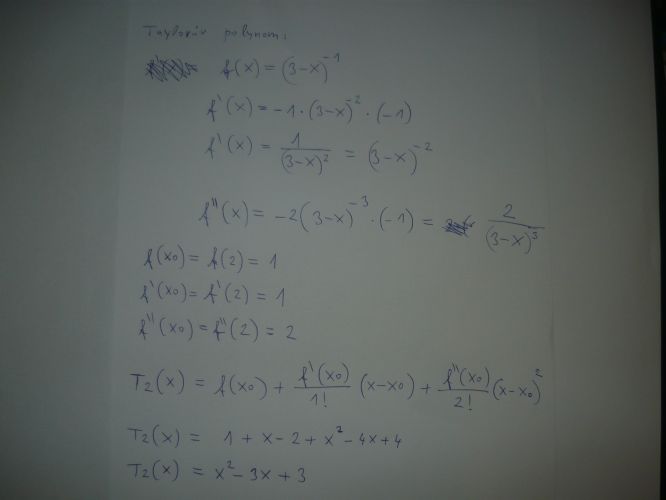 Taylorův polynom:
f(x) = (3-x)^-1
f'(x) = -1 · (3-x)^-2 · (-1)
f'(x) = 1/(3-x)^2 = (3-x)^-2
f''(x) = -2(3-x)^-3 · (-1) = 2/(3-x)^3
f(x0) = f(2) = 1
f'(x0) = f'(2) = 1
f''(x0) = f''(2) = 2
T2(x) = f(x0) + f'(x0)/1! (x-x0) + f''(x0)/2! (x-x0)^2
T2(x) = 1 + x - 2 + x^2 - 4x + 4
T2(x) = x^2 - 3x + 3